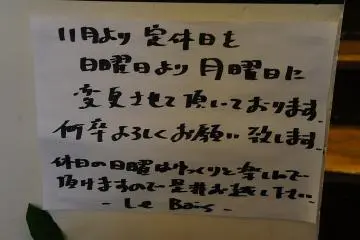 11月より定休日を
日曜日より月曜日に
変更させて頂いております。
何卒よろしくお願い致します。
休日の日曜はゆっくりと楽しんで
頂けますので是非お越し下さい。
- Le Bois -